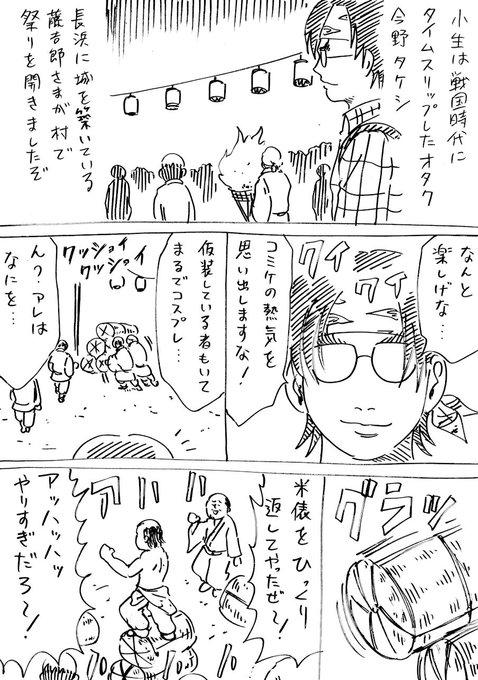 小生は戦国時代に
タイムスリップしたオタク
今野タケシ
長浜に城を築いている
藤吉郎さまが村で
祭りを開きましたぞ
なんと
楽しげな…
クイ
クイ
コミケの熱気を
思い出しますな!
仮装している者もいて
まるでコスプレ…
ワッショイ
ワッショイ
ん?アレは
なにを…
グラッ
米俵をひっくり
返してやったぜ〜!
アハハ
アッハッハッ
やりすぎだろ〜!